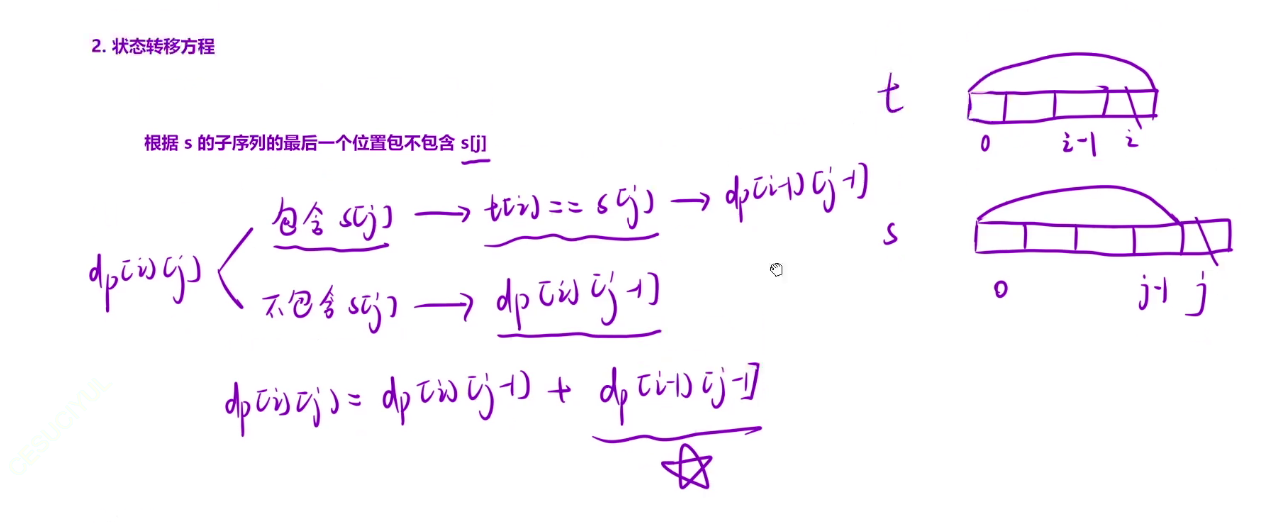 2. 状态转移方程
根据 s 的子序列的最后一个位置包不包含 s[j]
包含 s[j] → t[i] == s[j] → dp[i-1][j-1]
dp[i][j]
不包含 s[j] → dp[i][j-1]
dp[i][j] = dp[i][j-1] + dp[i-1][j-1]
t
0 i-1 i
s
0 j-1 j